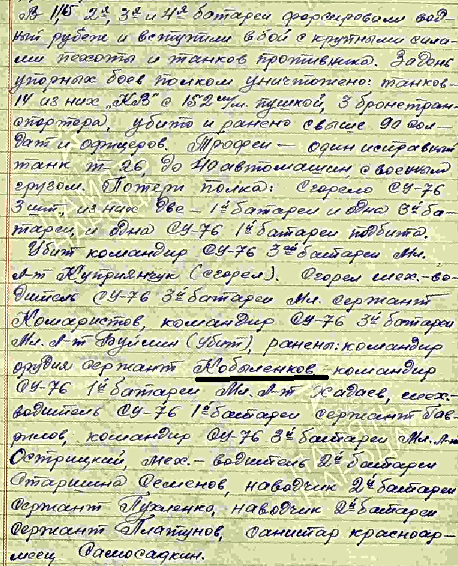 В 1/5 2я, 3я и 4я батареи форсировали вод-
ный рубеж и вступили в бой с крупными сила-
ми пехоты и танков противника. За день
упорных боев полком уничтожено: танков-
14 из них "КВ" с 152 м/м. пушкой, 3 бронетран-
спортера, убито и ранено свыше 90 сол-
дат и офицеров. Трофеи – один исправный
танк Т-26, до 40 автомашин с военным
грузом. Потери полка: Сгорело СУ-76
3 шт, из них две – 1й батареи и одна 3й ба-
тареи и одна СУ-76 1й батареи подбита.
Убит командир СУ-76 3ей батареи Мл.
Л-т Куприянчук (сгорел). Сгорел мех.-во-
дитель СУ-76 3й батареи Мл. сержант
Комаристов, командир СУ-76 3й батареи
Мл. Л-т (убит), ранены: командир
орудия сержант Кобыленков, командир
СУ-76 1й батареи Мл. Л-т Хадаев, мех.-
водитель СУ-76 1й батареи сержант Гав-
рилов, командир СУ-76 3й батареи Мл. Л-т
Острицкий, мех.- водитель 2й батареи
Старшина Семенов, наводчик 2й батареи
Сержант Пухленко, наводчик 2й батареи
Сержант Платунов, санитар красноар-
меец Самосадкин.